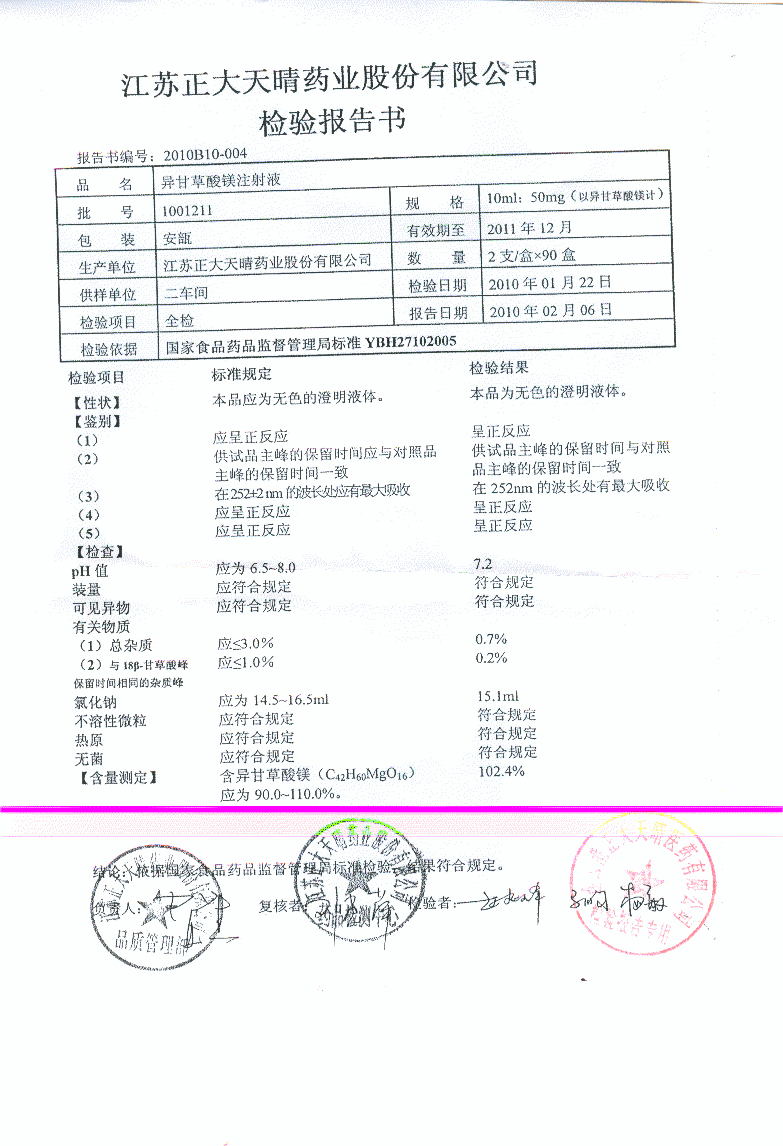 江苏正大天晴药业股份有限公司
检验报告书
报告书编号：2010B10-004
品 名 异甘草酸镁注射液
批 号 1001211 规 格 10ml：50mg（以异甘草酸镁计）
包 装 安瓿 有效期至 2011 年 12 月
生产单位 江苏正大天晴药业股份有限公司 数 量 2 支/盒×90 盒
供样单位 二车间 检验日期 2010 年 01 月 22 日
检验项目 全检 报告日期 2010 年 02 月 06 日
检验依据 国家食品药品监督管理局标准 YBH27102005
检验项目 标准规定 检验结果
【性状】 本品应为无色的澄明液体。 本品为无色的澄明液体。
【鉴别】
（1） 应呈正反应 呈正反应
（2） 供试品主峰的保留时间应与对照品 供试品主峰的保留时间与对照
主峰的保留时间一致 品主峰的保留时间一致
（3） 在252±2 nm 的波长处应有最大吸收 在 252nm 的波长处有最大吸收
（4） 应呈正反应 呈正反应
（5） 应呈正反应 呈正反应
【检查】
pH 值 应为 6.5~8.0 7.2
装量 应符合规定 符合规定
可见异物 应符合规定 符合规定
有关物质
（1）总杂质 应≤3.0% 0.7%
（2）与 18β-甘草酸峰 应≤1.0% 0.2%
保留时间相同的杂质峰
氯化钠 应为 14.5~16.5ml 15.1ml
不溶性微粒 应符合规定 符合规定
热原 应符合规定 符合规定
无菌 应符合规定 符合规定
【含量测定】 含异甘草酸镁（C₄₂H₆₀MgO₁₆） 102.4%
应为 90.0~110.0%。
结论：依据国家食品药品监督管理局标准检验，结果符合规定。
负责人： 复核者： 检验者：
品质管理部